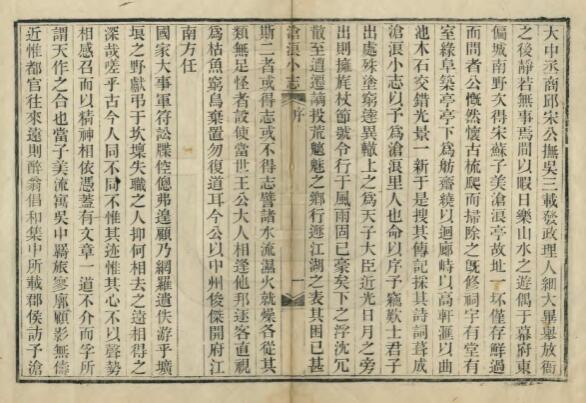 大中丞商邱宋公撫吳三載發政理人細大畢舉放衙
之後靜若無事焉間以暇日樂山水之遊偶于幕府東
偏城南野次得宋蘇子美滄浪亭故地一坏僅存鮮過
而問者公慨然懷古梳爬而掃除之旣修祠宇有堂有
室綠阜築亭亭下爲舫齋繞以迴廊峙以高軒滙以曲
池木石交錯光景一新于是搜其傳記採其詩詞葺成
滄浪小志以予爲滄浪里人也命以序予竊歎士君子
出處殊塗窮達異轍上之爲天子大臣近光日月之旁
出則擁旄杖節號令行于風雨固已豪矣下之浮沈冗
散至遭遷謫投荒魑魅之鄉行遯江湖之表其困已甚
滄浪小志
序
一
斯二者或得志或不得志譬諸水流濕火就燥各從其
類無足怪者設使當世王公大人相逢他邦逐客直視
爲枯魚窮鳥棄置勿復道耳今公以中州俊傑開府江
南方任
國家大事軍符訟牒倥傯弗遑顧乃網羅遺佚游乎壙
埌之野獻弔于坎壈失職之人抑何相去之遠相得之
深哉嗟乎古今人同不同不惟其迹惟其心不以聲勢
相感召而以精神相依憑蓋有文章一道不介而孚所
謂天作之合也當子美流寓吳中羇旅寥廓顧影無儔
近惟都官往來遠則醉翁倡和集中所載郡侯訪予滄